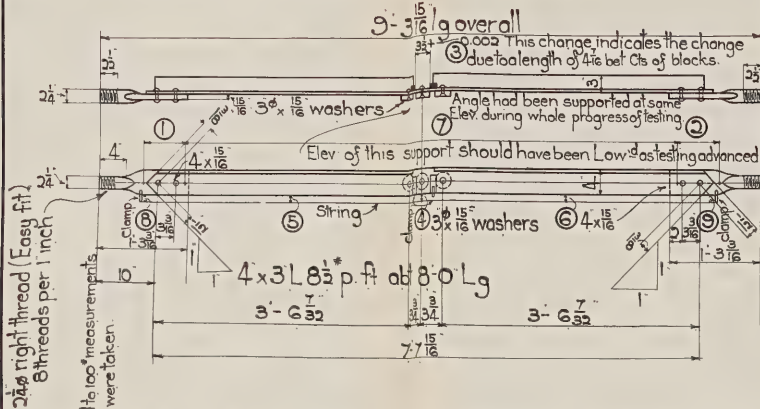 9'-3 15/16" lg overall
3 3/4"
+0.002 This change indicates the change
③ due to a length of 4 7/16 bet Cts of blocks.
2 1/2"
2 1/2"
2 1/4"
3
15/16" 3"ø x 15/16" washers
Angle had been supported at same
⑦ Elev. during whole progress of testing.
①
②
4" x 15/16"
Elev of this support should have been Low'd as testing advanced
4"
2 1/4"
4
Clamp
⑧
3 3/16"
1'-3 3/16"
⑤
String
④ 3"ø 15/16" washers
⑥ 4" x 15/16"
⑨
Clamp
2" 3 3/16"
1'-3 3/16"
10"
1"
1"
4" x 3" L 8 1/2# p. ft abt 8'-0" Lg
1"
1"
3'- 6 7/32"
3 3/4"
3 3/4"
3'- 6 7/32"
7'-7 15/16"
2 1/4"ø right thread (Easy fit)
8 threads per 1 inch
to 100" measurements
were taken.